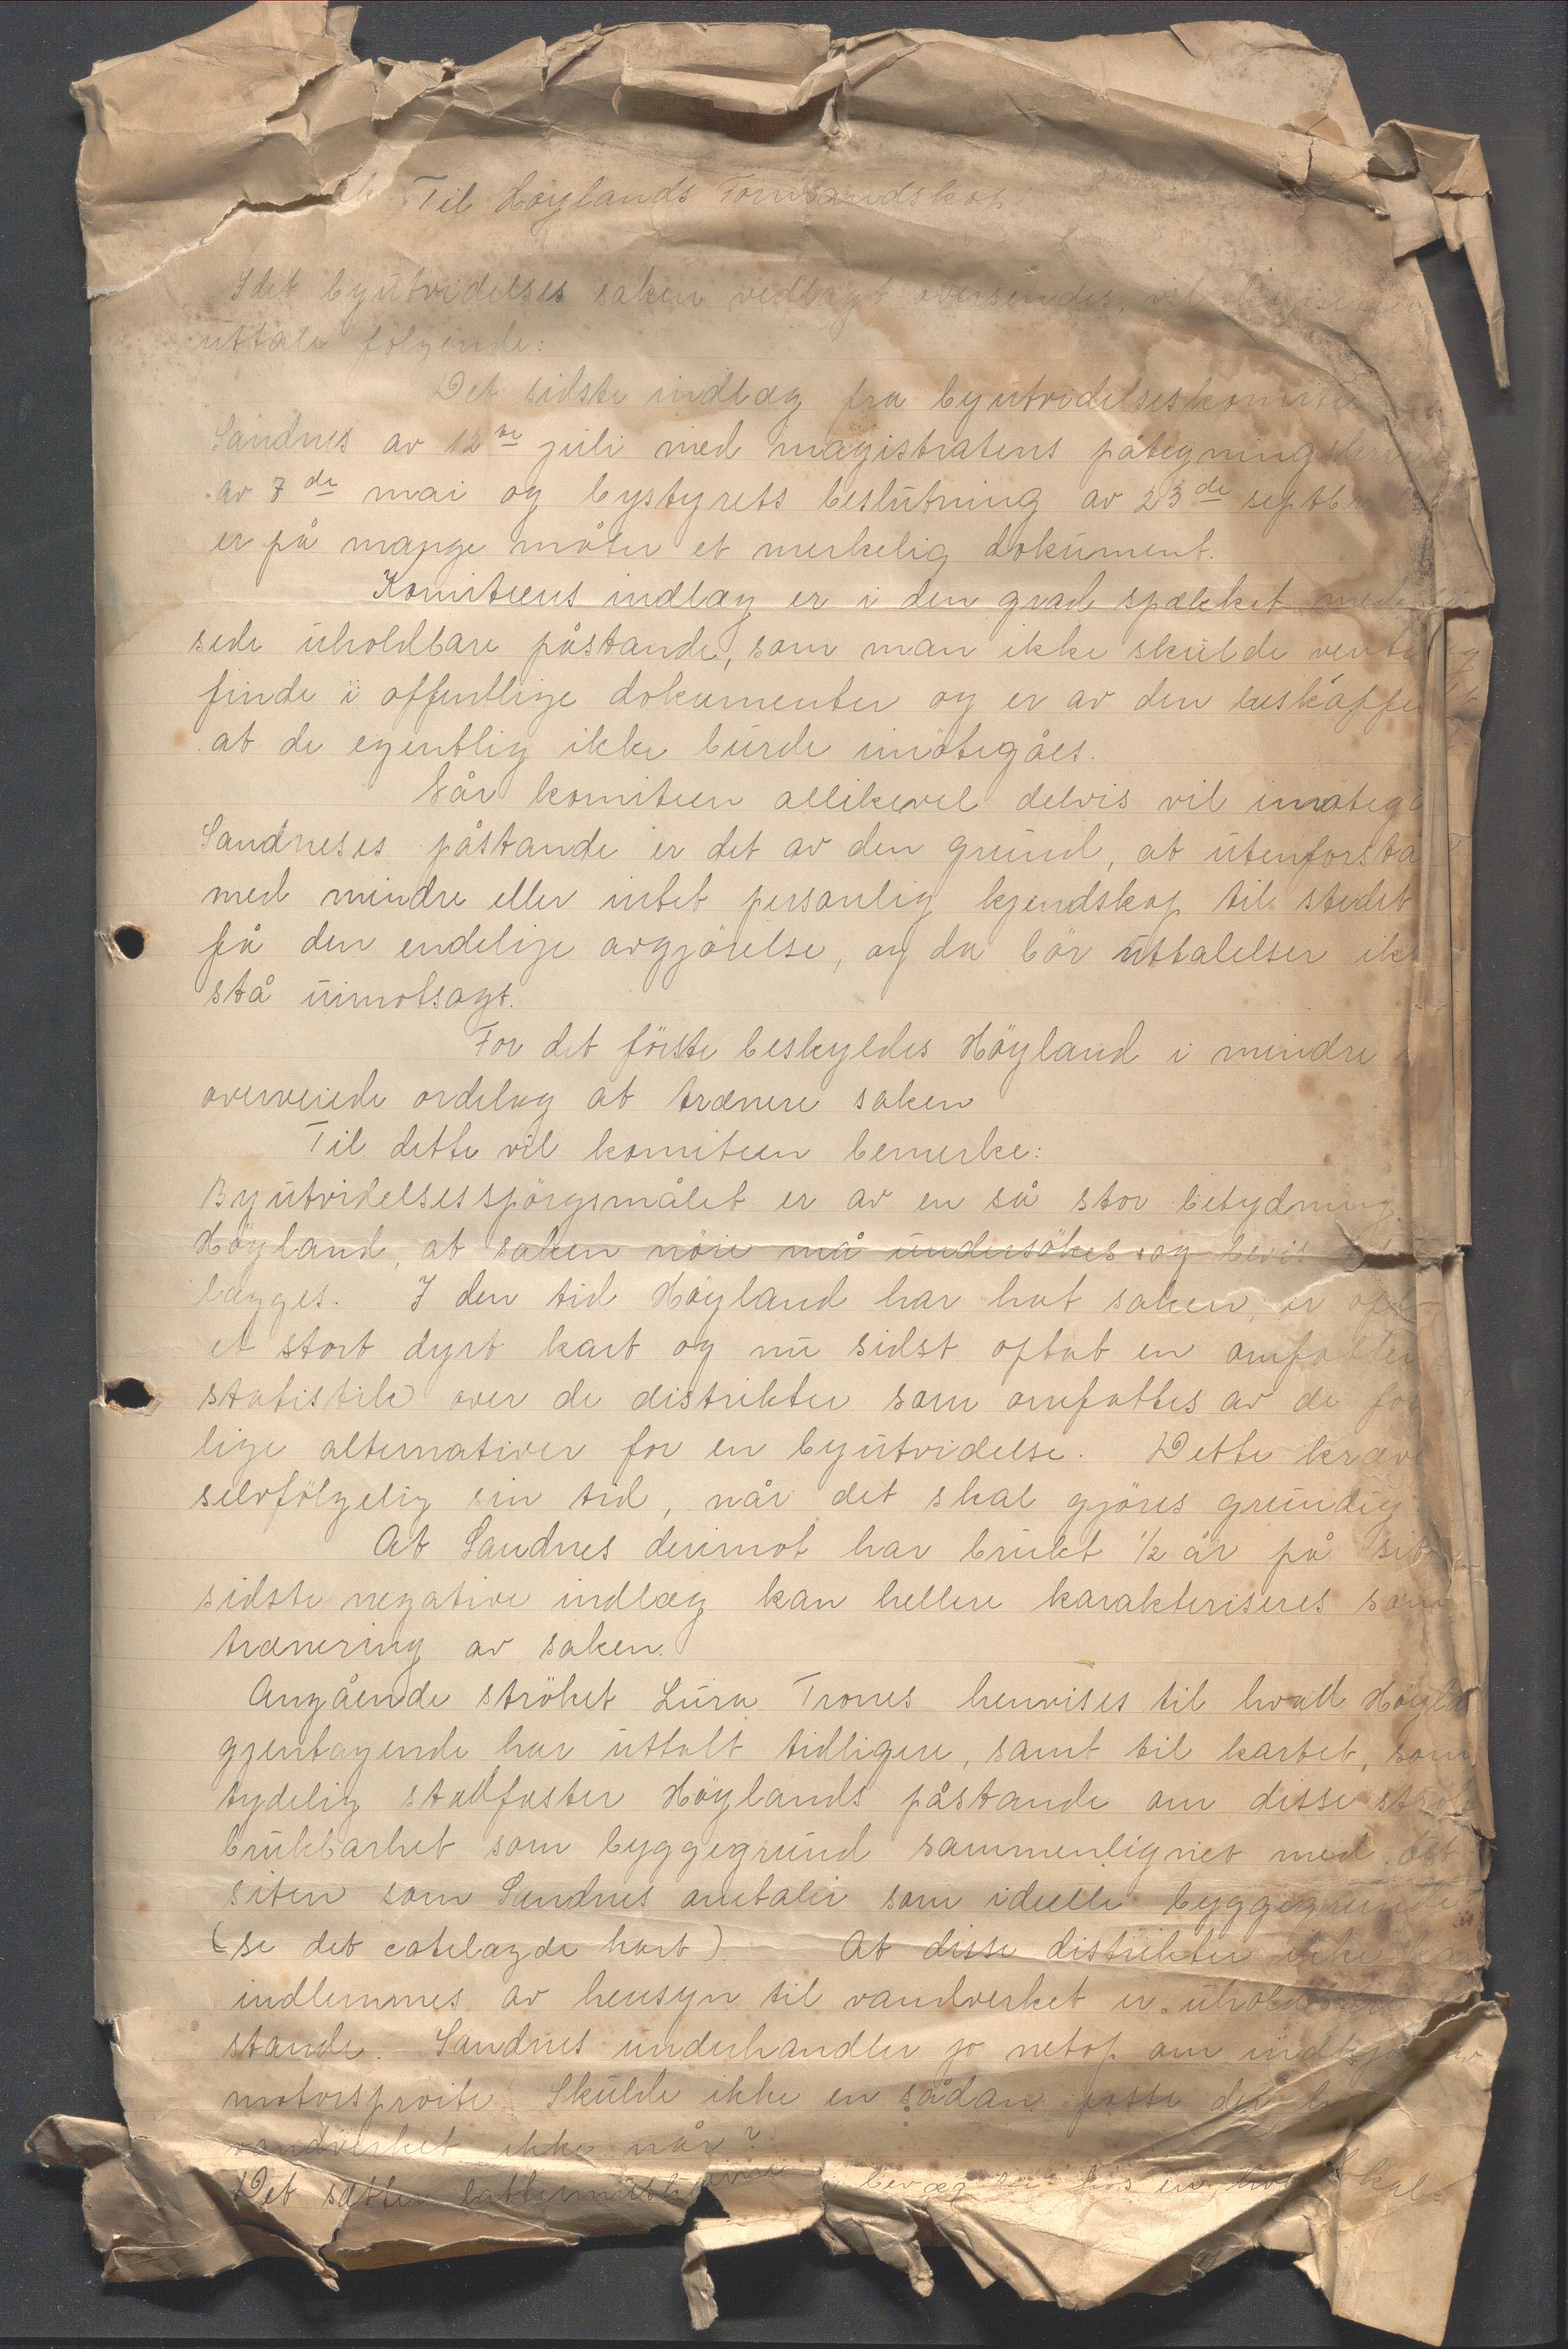 Til Höylands Formandskap.
Idet byutvidelses saken vedlagt oversendes, vil
uttale følgende:
Det sidste indlæg fra byutvidelseskomiteen
Sandnes av 12te juli med magistratens påtegning
av 7de mai og bystyrets beslutning av 23de septbr
er på mange måter et merkelig dokument.
Komiteens indlæg er i den grad spækket med
sede uholdbare påstande, som man ikke skulde vente
finde i offentlige dokumenter og er av den beskaffen
at de egentlig ikke burde imötegåes.
Når komiteen allikevel delvis vil imötegå
Sandneses påstande er det av den grund, at utenforstå
med mindre eller intet personlig kjendskap til stedet
få den endelige avgjörelse, og da bör uttalelser ikke
stå uimotsagt.
For det förste beskyldes Höyland i mindre
overveiede ordelag at trænere saken
Til dette vil komiteen bemerke:
Byutvidelsesspörgsmålet er av en så stor betydning
Höyland, at saken nöie må undersökes og bevis
lægges. I den tid Höyland har hat saken, er
et stort dyrt kart og nu sidst optat en omfatten
statistik over de distrikter som omfattes av de for
lige alternativer for en byutvidelse. Dette kræve
selvfölgelig sin tid, når det skal gjöres grundig
At Sandnes derimot har brukt 1/2 år på sit
sidste negative indlæg kan hellere karakteriseres som
trænering av saken.
Angående ströket Lura Trones henvises til hvad Höyla
gjentagende har uttalt tidligere, samt til kartet, som
tydelig stadfæster Höylands påstande om disse strök
brukbarhet som byggegrund sammenlignet med öst
siten som Sandnes omtaler som ideelle byggegrunde
(se det kart). At disse distrikter ikke kan
indlemmes av hensyn til vandverket er uholdbar
stande. Sandnes underhandler jo netop om indkjöp av
motorspröite. Skulde ikke en sådan passe der
vandverket ikke når?
Det sætter lattermusklerne i bevægelse hos en hver lokal-